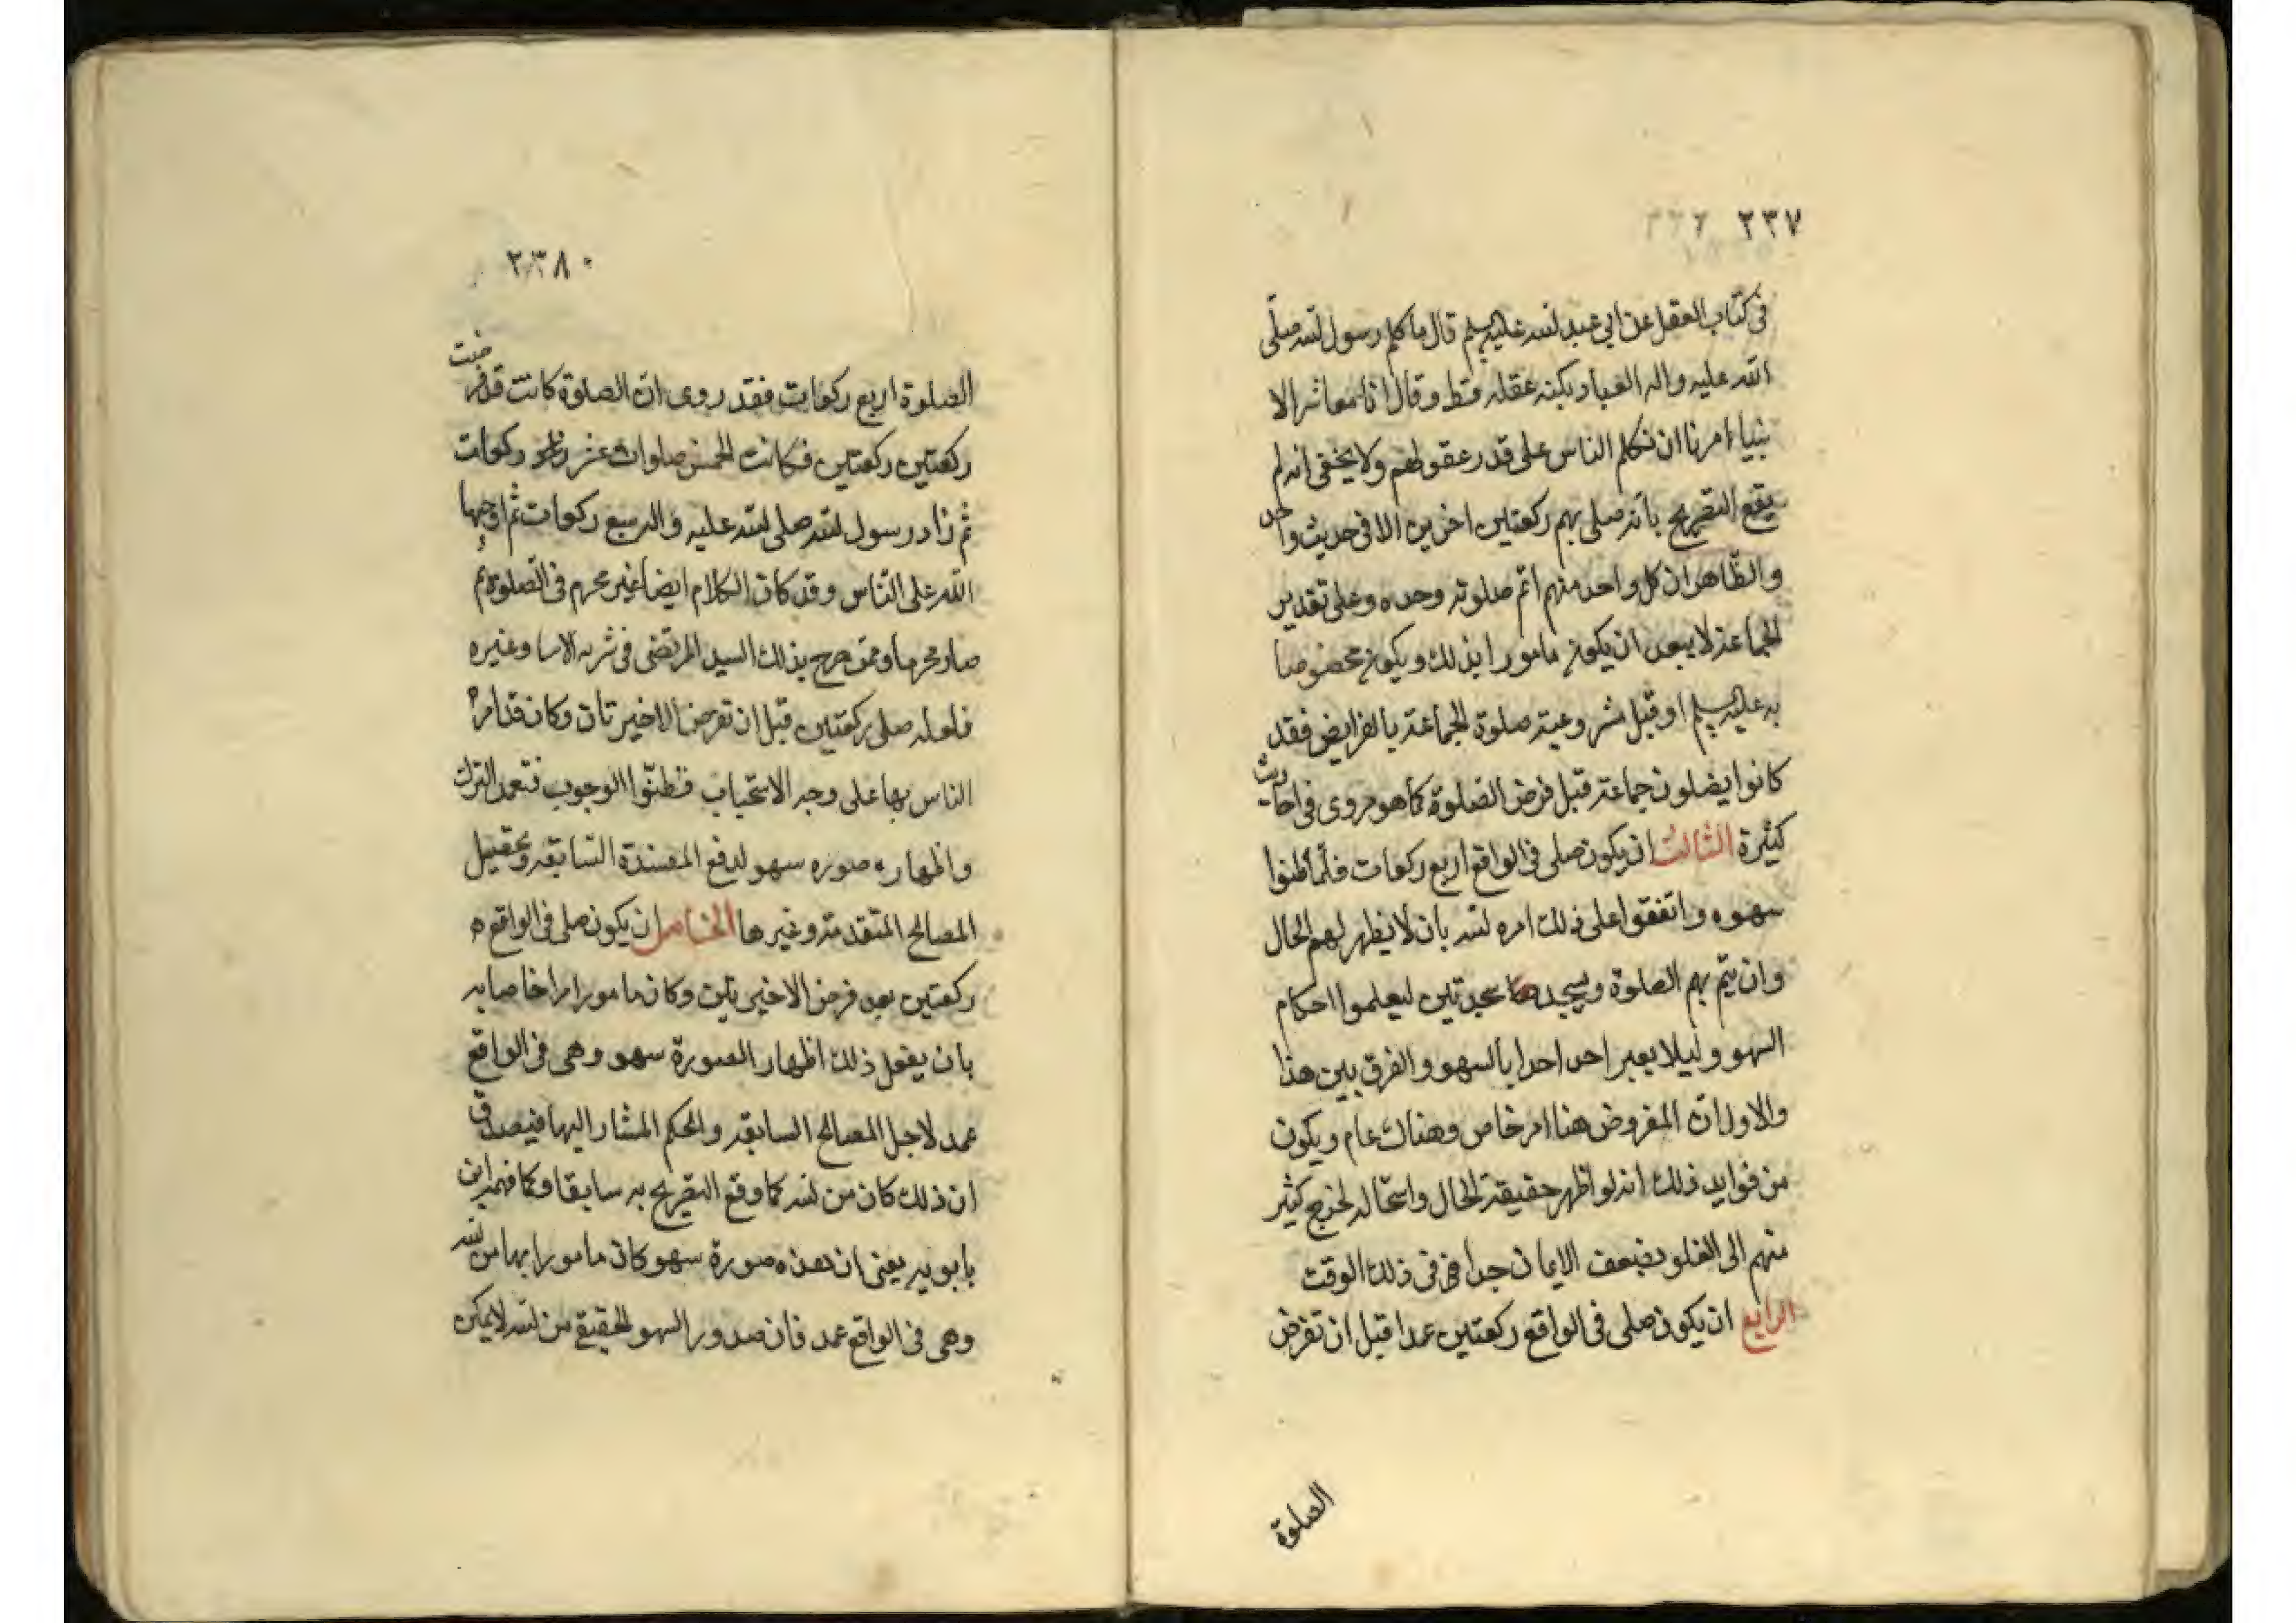 ٢٣٧ ٢٣٦
فى كتاب العقل عن ابى عبد الله عليه السلم قال ما كلم رسول الله صلى
الله عليه واله العباد بكنه عقله قط وقال انا معاشر الا
نبياء امرنا ان نكلم الناس على قدر عقولهم ولا يخفى انه لم
يقع التصريح بانه صلى بهم ركعتين اخرين الا فى حديث واحد
والظاهر ان كل واحد منهم اتم صلوته وحده وعلى تقدير
الجماعة لا يبعد ان يكون مامورا بذلك ويكون مخصوصا
به عليه السلم او قبل مشروعية صلوة الجماعة بالفرايض فقد
كانوا يصلون جماعة قبل فرض الصلوة كما هو مروى فى احاديث
كثيرة الثالث ان يكون صلى فى الواقع اربع ركعات فلما ظنوا
سهوه واتفقوا على ذلك امره الله بان لا يظهر لهم الحال
وان يتم بهم الصلوة ويسجد سجدتين ليعلموا احكام
السهو وليلا يعير احد احدا بالسهو والفرق بين هذا
والاول ان المفروض هنا امر خاص وهناك عام ويكون
من فوايد ذلك انه لو اظهر حقيقة الحال واستحاله لخرج كثير
منهم الى الغلو لضعف الايمان جدا فى ذلك الوقت
الرابع ان يكون صلى فى الواقع ركعتين عمدا قبل ان تفرض
الصلوة
٢٣٨٠
الصلوة اربع ركعات فقد روى ان الصلوة كانت قد فرضت
ركعتين ركعتين فكانت الخمس صلوات عشر ركعات
ثم زاد رسول الله صلى الله عليه واله سبع ركعات ثم اوجبها
الله على الناس وقد كان الكلام ايضا غير محرم فى الصلوة ثم
صار محرما وممن صرح بذلك السيد المرتضى فى وغيره
فلعله صلى ركعتين قبل ان تفرض الاخيرتان وكان قد امر
الناس بها على وجه الاستحباب فظنوا الوجوب فتعمد الترك
واظهاره صوره سهو لدفع المفسدة السابقه وتحصيل
المصالح المتقدمة وغيرها الخامس ان يكون صلى فى الواقع
ركعتين بعد فرض الاخيرتين وكان مامورا امرا خاصا به
بان يفعل ذلك اظهار الصورة سهو وهى فى الواقع
عمد لاجل المصالح السابقة والحكم المشار اليها فيصدق
ان ذلك كان من الله كما وقع التصريح به سابقا وكما فهمه ابن
بابويه يعنى ان هذه صورة سهو كان مامورا بها من الله
وهى فى الواقع عمد فان صدور السهو الحقيقى من الله لا يمكن